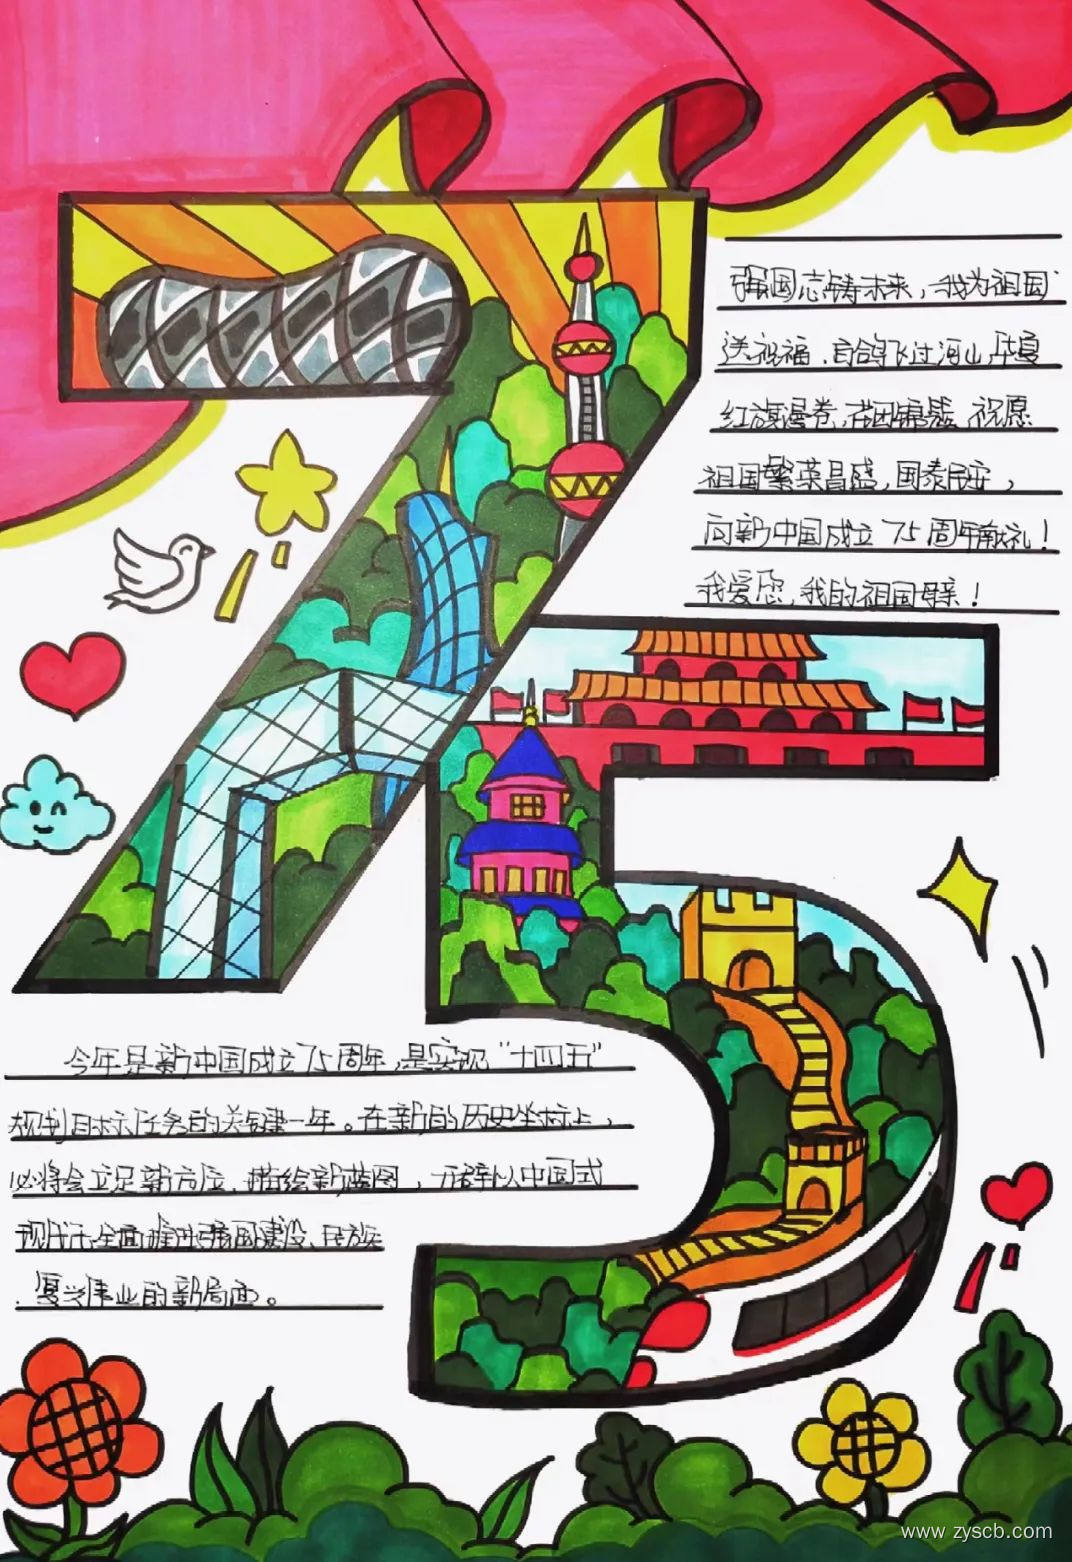 强国志铸未来，我为祖国
送祝福，白鸽飞过河山华夏
红旗漫卷，花团锦簇 祝愿
祖国繁荣昌盛，国泰民安，
向新中国成立 75 周年献礼！
我爱您，我的祖国母亲！
75
今年是新中国成立 75 周年，是实现“十四五”
规划目标任务的关键一年。在新的历史坐标上，
必将会立足新方位、描绘新蓝图，开辟以中国式
现代化全面推进强国建设、民族
复兴伟业的新局面。
www.zyscb.com